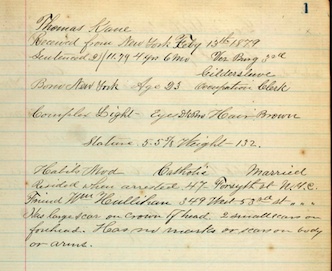 1
Thomas Kane
Received from New York Feby 13th 1879
Sentenced 2/11.79 4 yrs 6 Mo For Burg 3rd
Gildersleeve
Born New York Age 23 Occupation Clerk
Complex Light - Eyes Hair Brown
Stature. 5.5¾ Weight - 132.
Habits Mod Catholic Married
Resided when arrested 47 Forsyth st N.Y.C.
Friend Wm Hullihan 349 West 53rd st " "
Has large scar on crown of head. 2 small scars on
forehead. Has no marks or scars on body
or arms.